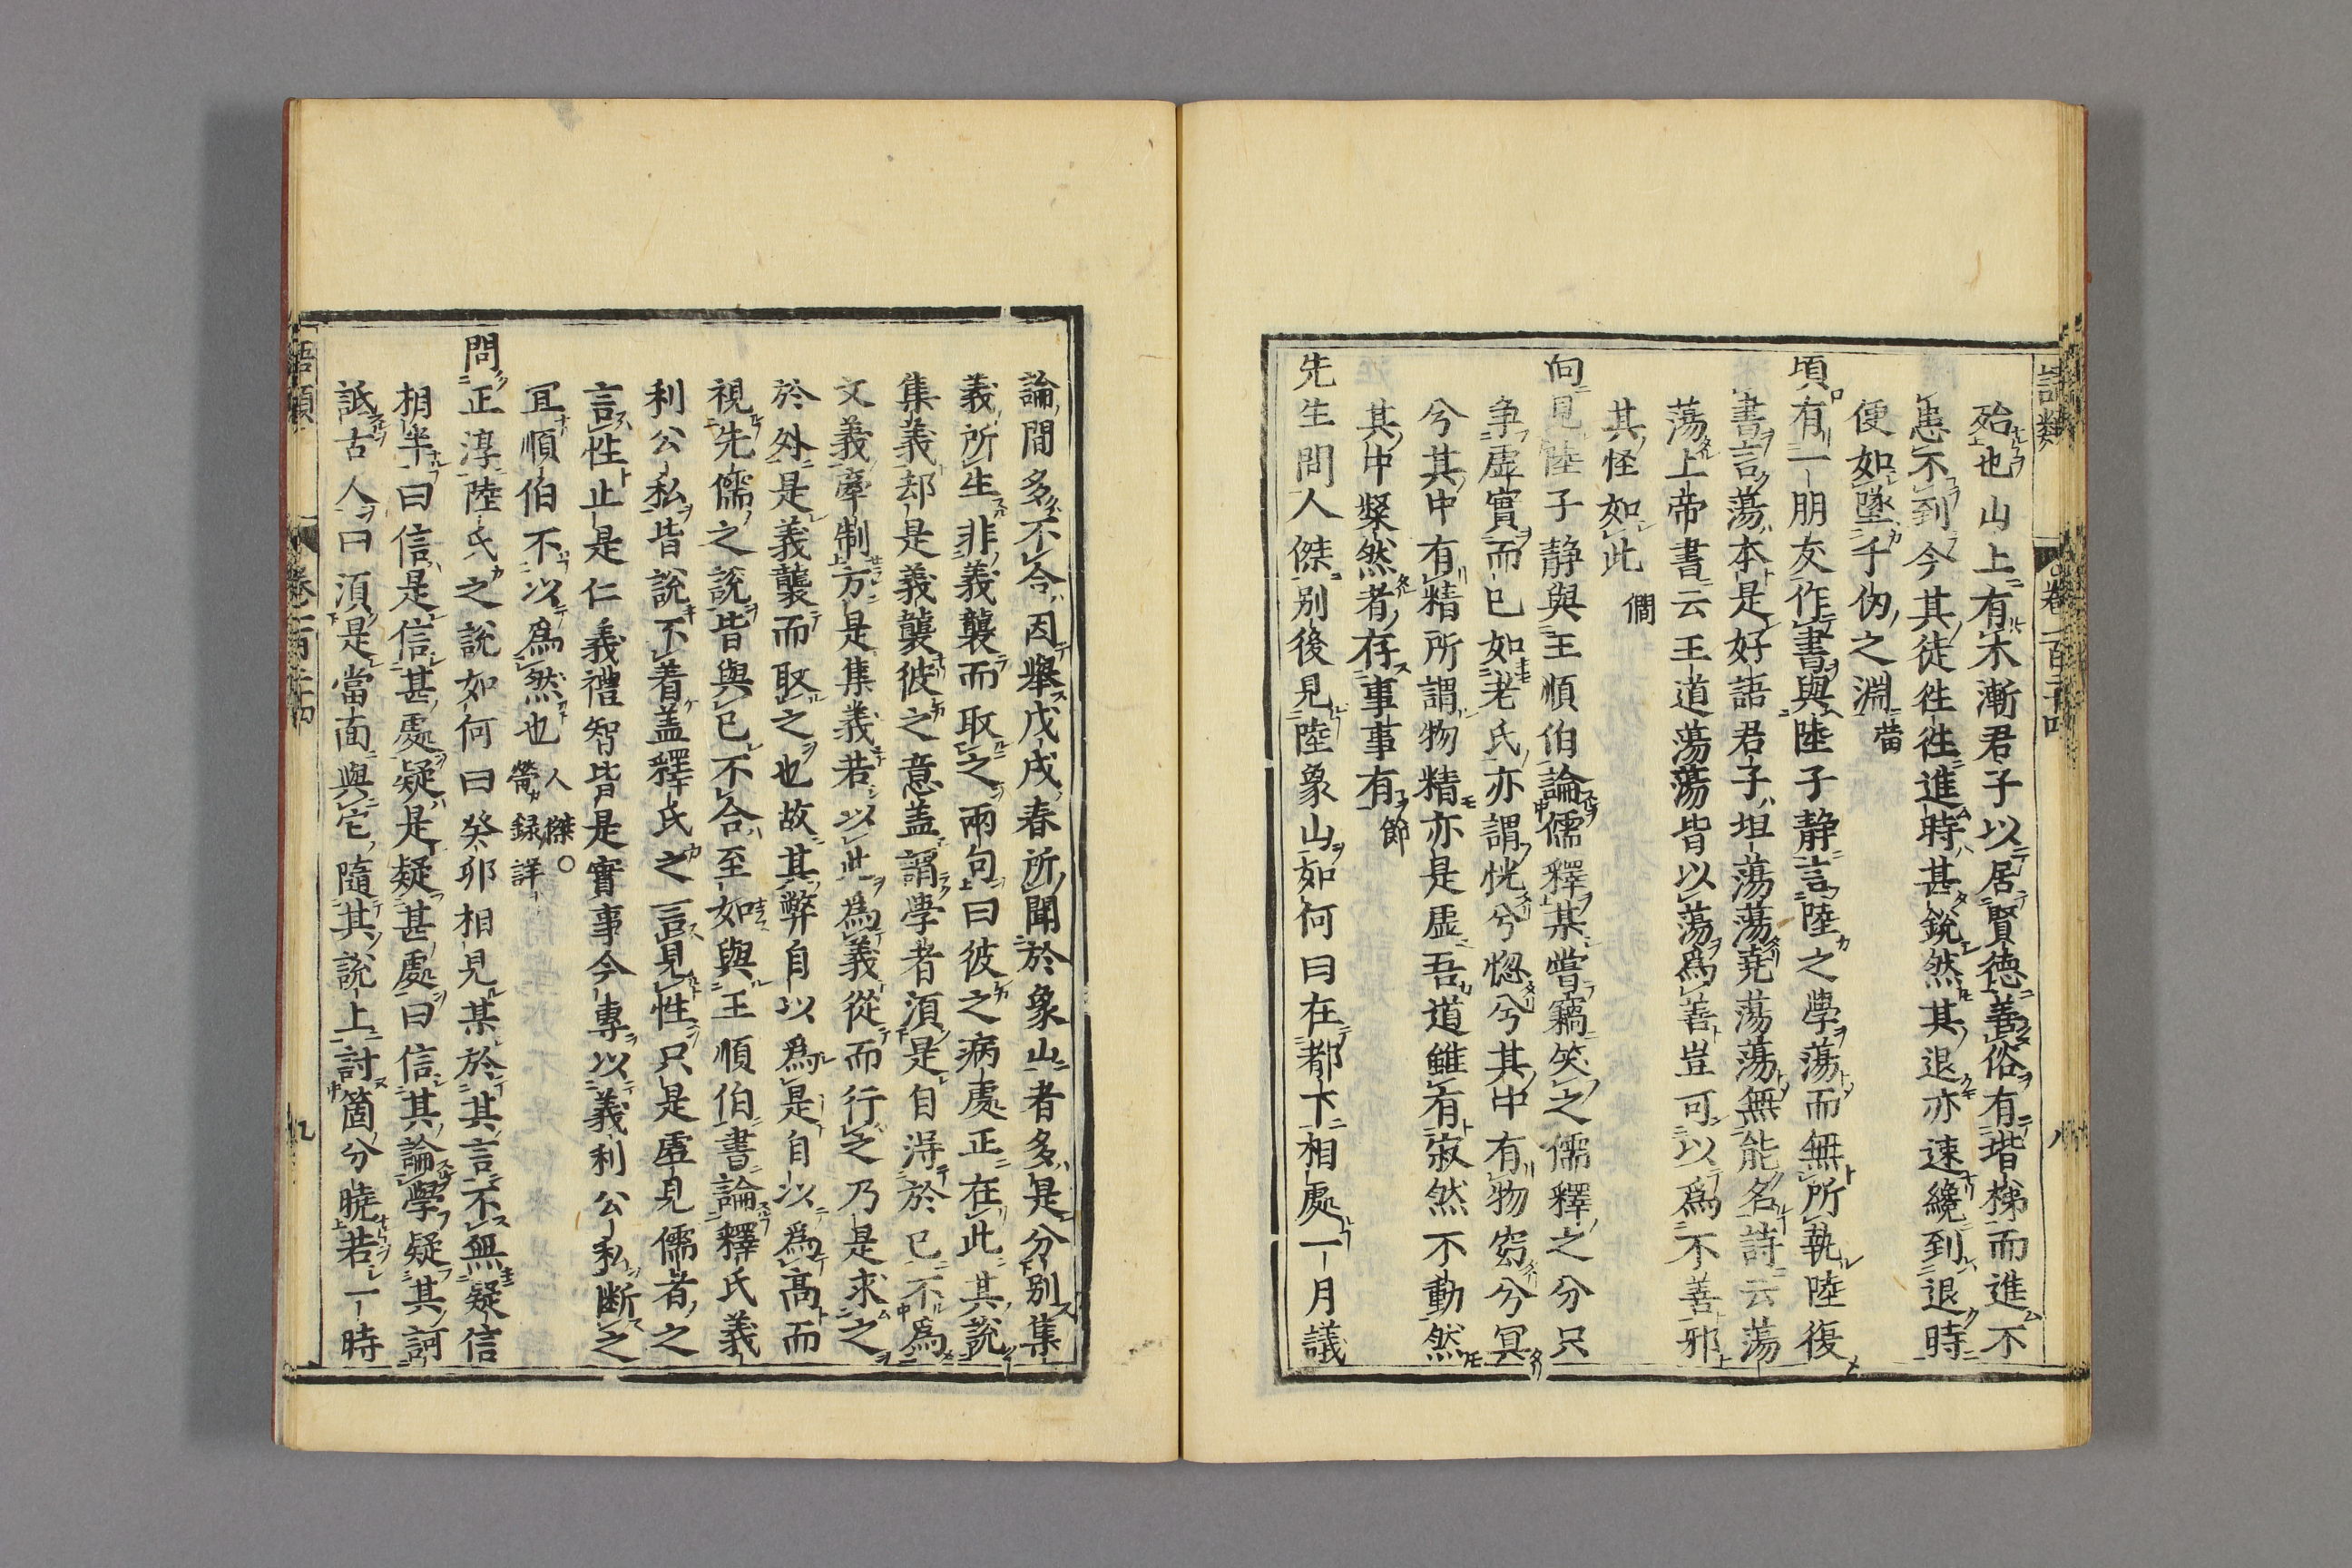 語類 卷一百二十四 八
殆也山上有木漸君子以居賢德善俗有堦梯而進不
患不到今其徒徃徃進時甚銳然其退亦速纔到退時
便如墜千仞之淵 㽦
頃有一朋友作書與陸子静言陸之學蕩而無所執陸復
書言蕩本是好語君子坦蕩蕩堯蕩蕩無能名詩云蕩
蕩上帝書云王道蕩蕩皆以蕩爲善豈可以爲不善邪
其怪如此 僩
向見陸子静與王順伯論儒釋某嘗竊笑之儒釋之分只
争虛實而已如老氏亦謂恍兮惚兮其中有物窈兮冥
兮其中有精所謂物精亦是虛吾道雖有寂然不動然
其中粲然者存事事有 節
先生問人傑别後見陸象山如何曰在都下相處一月議
論間多不合因舉戊戌春所聞於象山者多是分别集
義所生非義襲而取之兩句曰彼之病處正在此其說
集義却是義襲彼之意盖謂學者須是自得於己不爲
文義牽制方是集義若以此爲義從而行之乃是求之
於外是義襲而取之也故其弊自以爲是自以爲高而
視先儒之說皆與己不合至如與王順伯書論釋氏義
利公私皆說不着盖釋氏之言見性只是虛見儒者之
言性止是仁義禮智皆是實事今專以義利公私斷之
冝順伯不以爲然也 人傑○㽦録詳
問正淳陸氏之說如何曰癸卯相見某於其言不無疑信
相半曰信是信甚處疑是疑甚處曰信其論學疑其訶
詆古人曰須是當面與它隨其說上討箇分曉若一時
語類 卷一百二十四 九